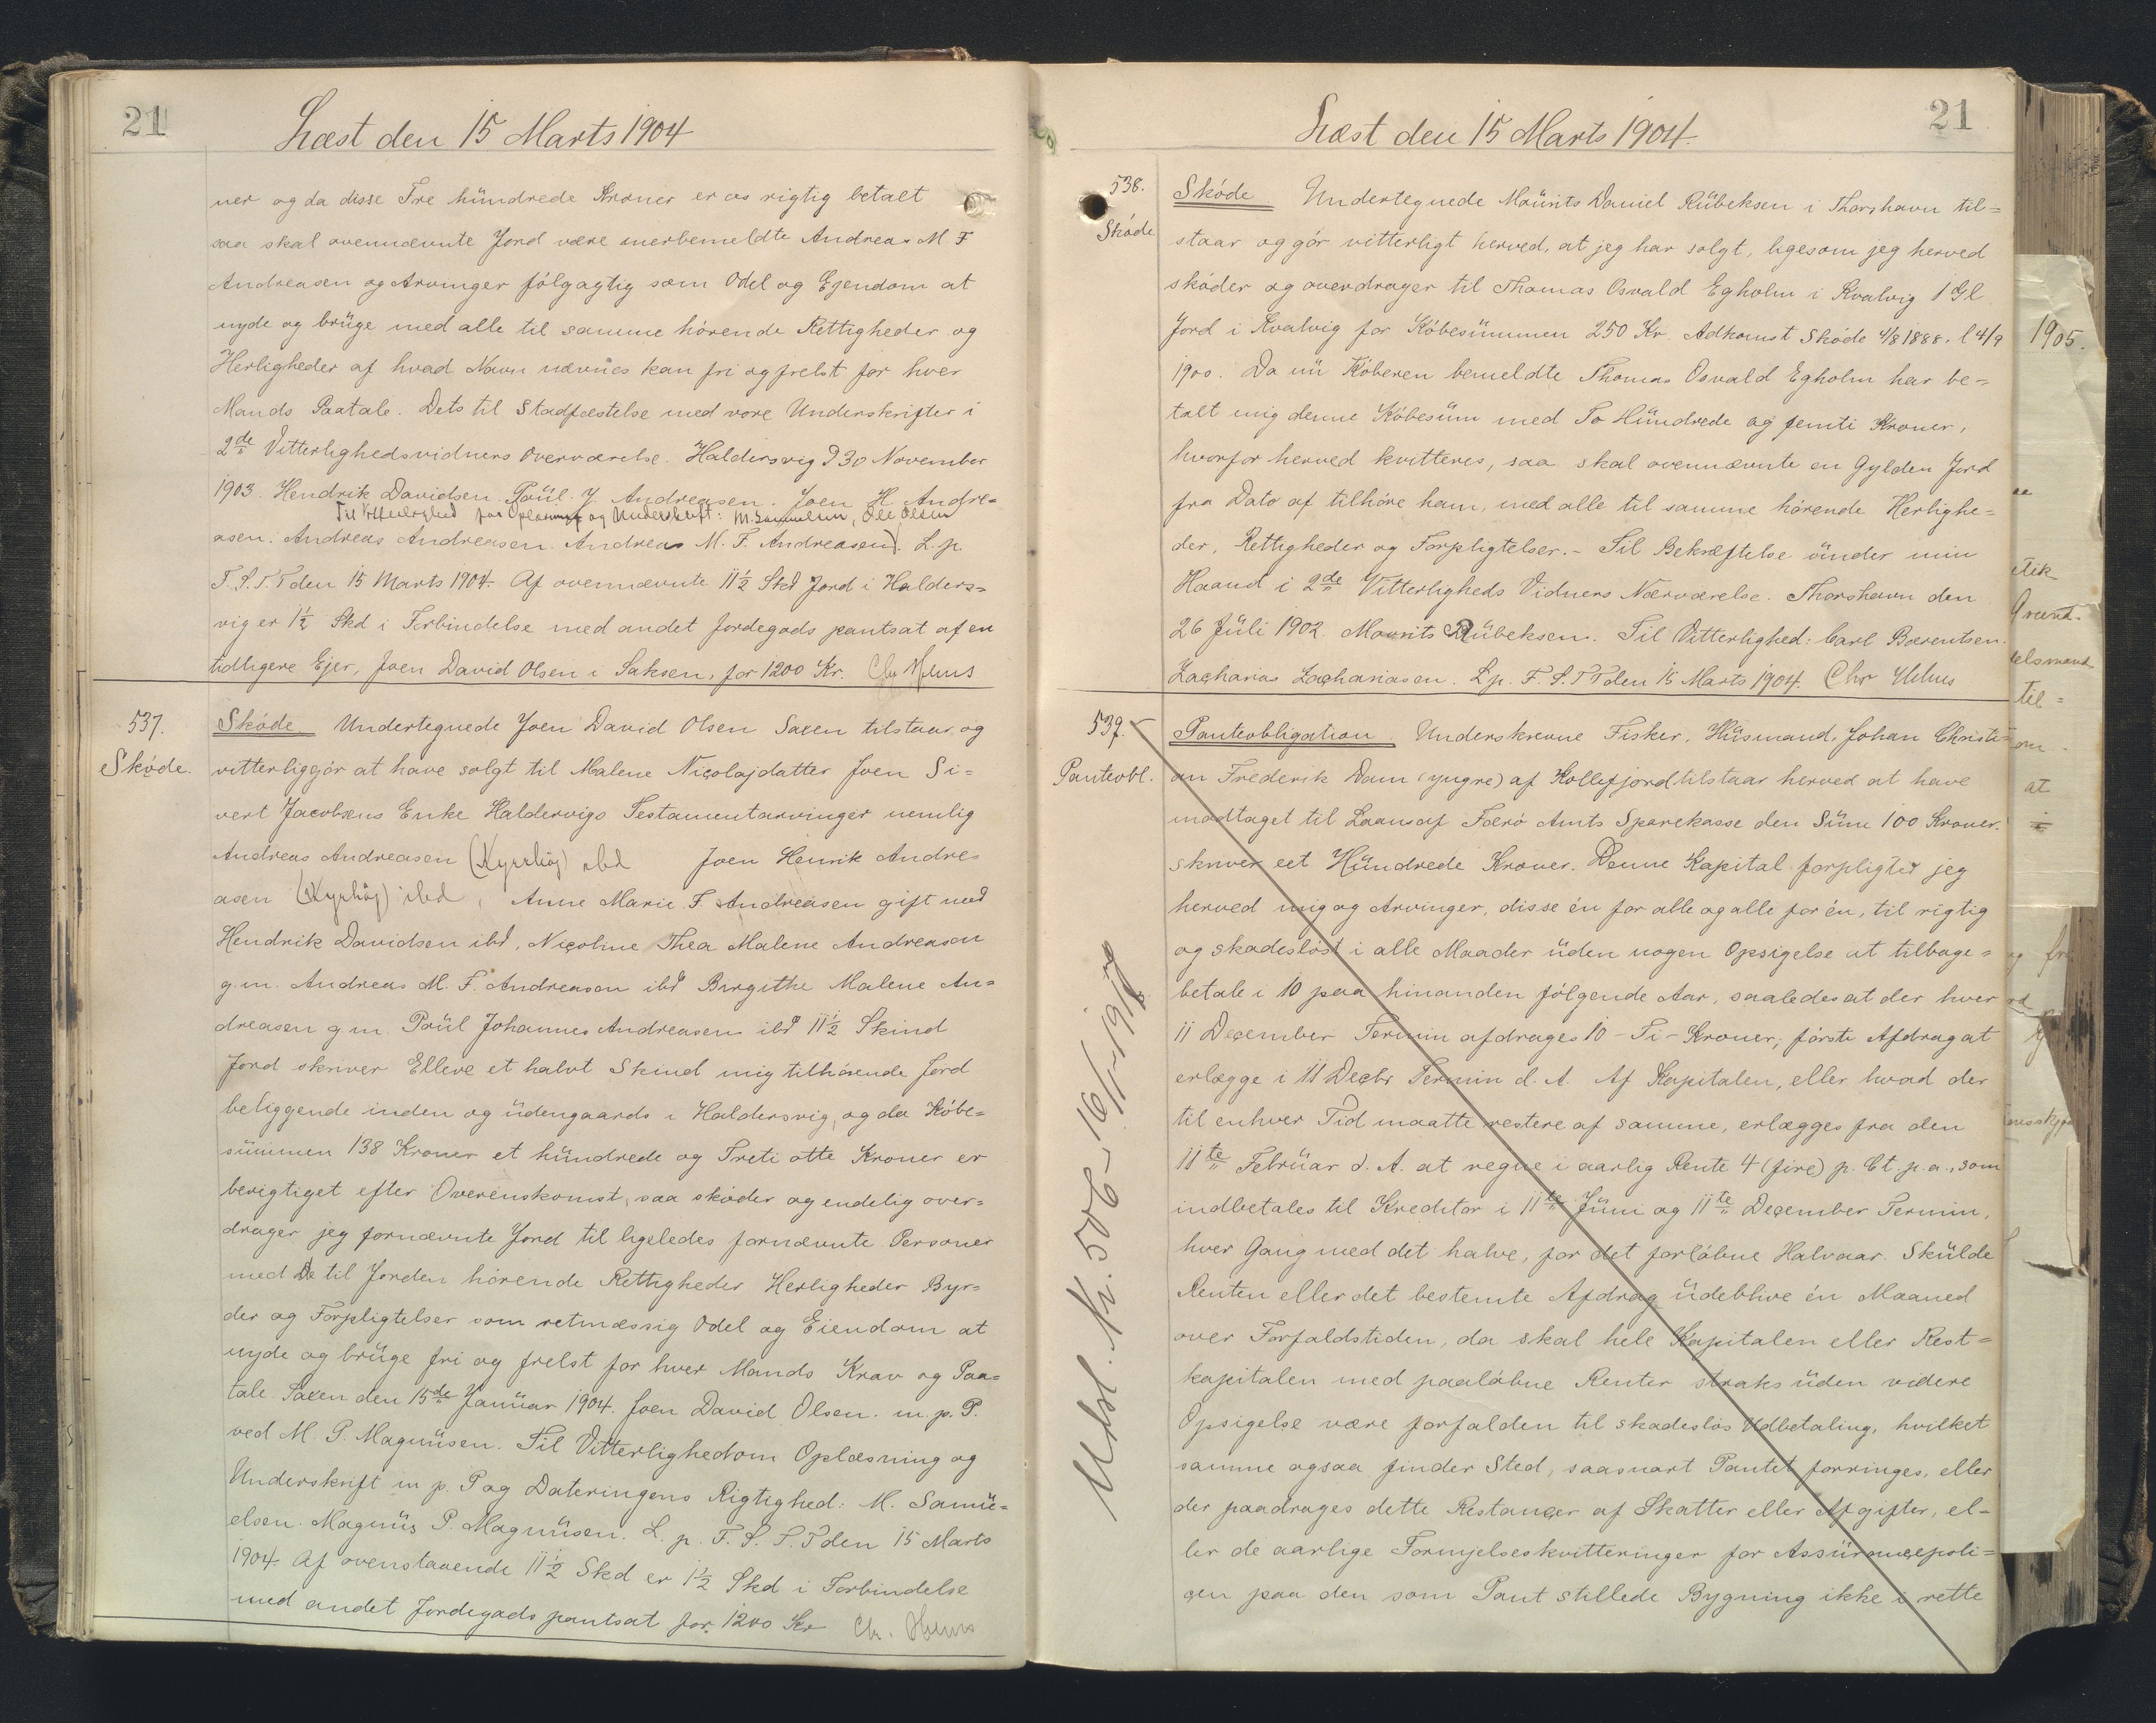 21
Læst den 15 Marts 1904
ner og da disse Tre hundrede Kroner er os rigtig betalt
saa skal ovennævnte Jord være merbemeldte Andreas M F
Andreasen og Arvinger fölgagtig som Odel og Ejendom at
nyde og brüge med alle til samme hörende Rettigheder og
Herligheder af hvad Navn nævnes kan fri og frelst for hver
Mands Paatale. Dets til Stadfæstelse med vore Underskrifter i
2de Vitterlighedsvidners Overværelse. Haldersvig D 30 November
1903. Hendrik Davidsen. Poül. J. Andreasen. Joen H. Andre=
Til Vitterlighed for Oplæsning og Underskrift: M. Samuelsen, Ole Olsen
asen. Andreas Andreasen. Andreas M. F. Andreasen). L. p.
F. S. T. T den 15 Marts 1904. Af ovennævnte 11½ Skd Jord i Halders=
vig er 1½ Skd i Forbindelse med andet Jordegods pantsat af en
tidligere Ejer, Joen David Olsen i Saksen, for 1200 Kr.
537.
Sköde.
Sköde Undertegnede Joen David Olsen Saxen tilstaar og
vitterliggjör at have solgt til Malene Nicolajdatter Joen Si=
vert Jacobsens Enke Haldervigs Testamentarvinger nemlig
Andreas Andreasen ibd Joen Henrik Andre=
asen ibd, Anne Marie F. Andreasen gift med
Hendrik Davidsen ibd, Nicoline Thea Malene Andreasen
g.m. Andreas M. F. Andreasen ibd Birgithe Malene An=
dreasen g.m. Poül Johannes Andreasen ibd 11½ Skind
Jord skriver Elleve et halvt Skind mig tilhörende Jord
beliggende inden og üdengaards i Haldersvig, og da Köbe=
sümmen 138 Kroner et hündrede og Treti otte Kroner er
berigtiget efter Overenskomst, saa sköder og endelig over=
drager jeg fornævnte Jord til ligeledes fornævnte Personer
med De til Jorden hörende Rettigheder Herligheder Byr=
der og Forpligtelser som retmæssig Odel og Eiendom at
nyde og brüge fri og frelst for hver Mands Krav og Paa=
tale. Saxen den 15de Januar 1904. Joen David Olsen. m. p. P.
ved M. P. Magnüsen. Til Vitterlighed om Oplæsning og
Underskrift m p. P og Dateringens Rigtighed: M. Samü=
elsen. Magnüs P. Magnüsen. L. p. F. S. T. T den 15 Marts
1904. Af ovenstaaende 11½ Skd er 1½ Skd i Forbindelse
med andet Jordegods pantsat for 1200 Kr
21
Læst den 15 Marts 1904.
538.
Sköde
Sköde Undertegnede Maürits Daniel Rübeksen i Thorshavn til=
staar og gör vitterligt herved, at jeg har solgt, ligesom jeg herved
sköder og overdrager til Thomas Osvald Egholm i Kvalvig 1 Gl.
Jord i Kvalvig for Köbesümmen 250 Kr. Adkomst Sköde 4/8 1888. l 4/9
1900. Da nü Köberen bemeldte Thomas Osvald Egholm har be=
talt mig denne Köbesüm med To Hündrede og femti Kroner,
hvorfor herved kvitteres, saa skal ovennævnte en Gylden Jord
fra Dato af tilhöre ham, med alle til samme hörende Herlighe=
der, Rettigheder og Forpligtelser.- Til Bekræftelse ünder min
Haand i 2de Vitterligheds Vidners Nærværelse. Thorshavn den
26 Jüli 1902. Mourits Rübeksen. Til Vitterlighed: Carl Bærentsen.
Zacharias Zachariasen. L p. F. S. T T den 15 Marts 1904.
539.
Panteobl.
Panteobligation. Underskrevne Fisker, Hüsmand, Johan Christi=
an Frederik Dam (yngre) af Kollefjord tilstaar herved at have
modtaget til Laans af Færö Amts Sparekasse den Süm 100 Kroner.
skriver eet Hündrede Kroner. Denne Kapital forpligter jeg
herved mig og Arvinger, disse én for alle og alle for én, til rigtig
og skadeslöst i alle Maader üden nogen Opsigelse at tilbage=
betale i 10 paa hinanden fölgende Aar, saaledes at der hver
11 December Termin afdrages 10 - Ti - Kroner; förste Afdrag at
erlægge i 11 Decbr Termin d. A. Af Kapitalen, eller hvad der
til enhver Tid maatte restere af samme, erlægges fra den
11te Februar d. A. at regne i aarlig Rente 4 (fire) p. Ct. p. a., som
indbetales til Kreditor i 11te Jüni og 11te December Termin,
hver Gang med det halve, for det forlöbne Halvaar. Skülde
Renten eller det bestemte Afdrag üdeblive én Maaned
over Forfaldstiden, da skal hele Kapitalen eller Rest=
kapitalen med paalöbne Renter straks üden videre
Opsigelse være forfalden til skadeslös Udbetaling, hvilket
samme ogsaa finder Sted, saasnart Pantet forringes, eller
der paadrages dette Restancer af Skatter eller Afgifter, el=
ler de aarlige Fornyelseskvitteringer for Assürancepoli=
cen paa den som Pant stillede Bygning ikke i rette
1905.
til=
at